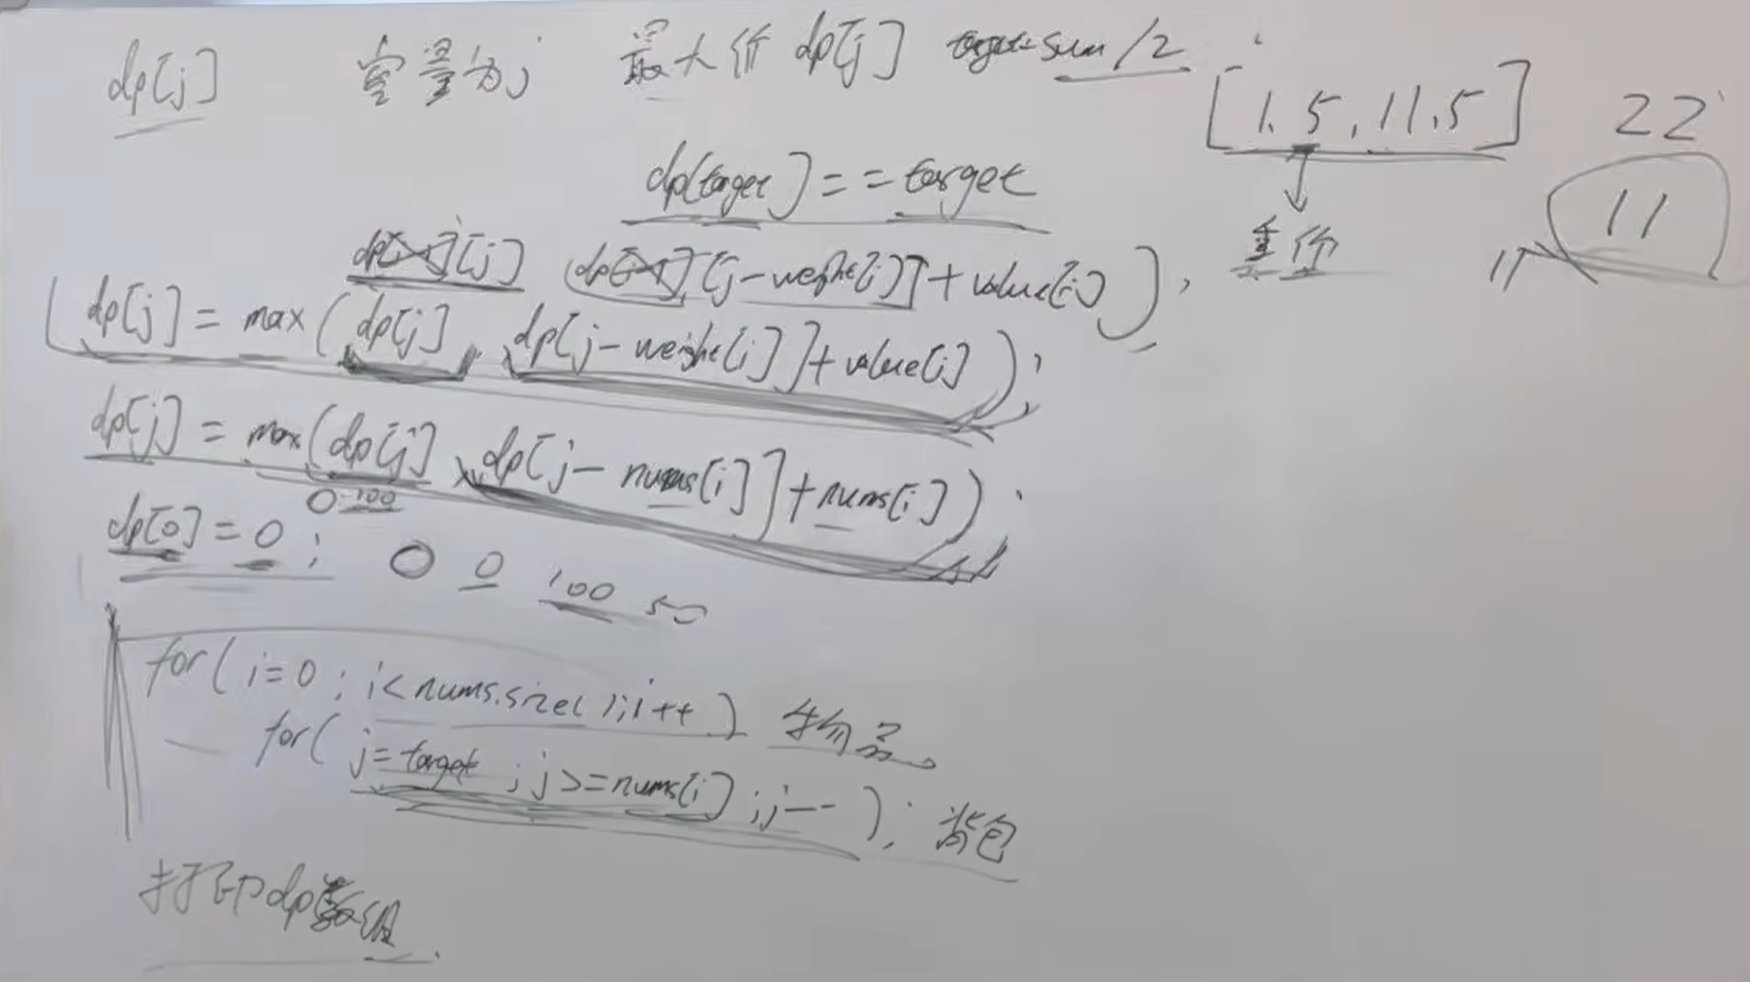 dp[j] 容量为j 最大价 dp[j] target=sum/2
[1.5,11.5] 22
dp[target]==target
11
重价 11
dp[i-1][j] (dp[i-1][j-weight[i]]+value[i]),
dp[j]=max(dp[j], dp[j-weight[i]]+value[i]);
dp[j]=max(dp[j], dp[j-nums[i]]+nums[i]);
0 100
dp[0]=0; 0 0 100 50
for(i=0;i<nums.size();i++) 物品
for(j=target;j>=nums[i];j--); 背包
打印dp数组.